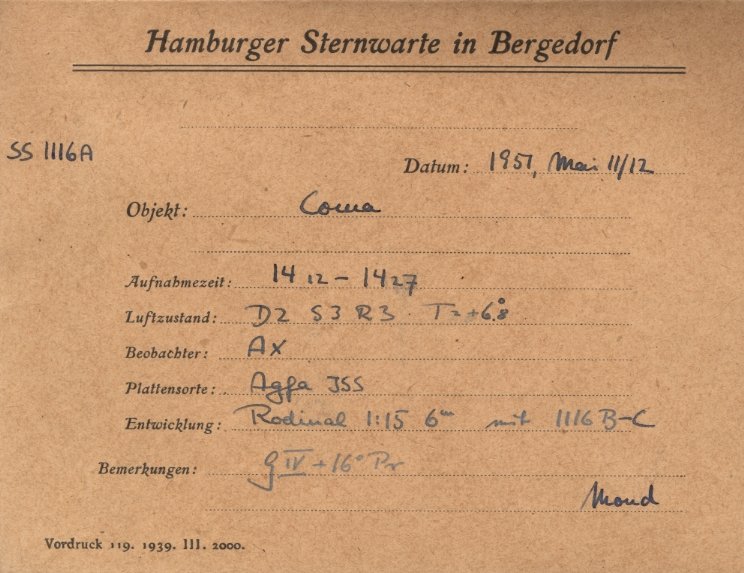 Hamburger Sternwarte in Bergedorf
SS 1116A
Datum: 1951, Mai 11/12
Objekt: Coma
Aufnahmezeit: 14 12 – 14 27
Luftzustand: D2 S3 R3 . T = +6°.8
Beobachter: AX
Plattensorte: Agfa ISS
Entwicklung: Rodinal 1:15 6m mit 1116 B-C
Bemerkungen: g IV + 16° Pr
Mond
Vordruck 119. 1939. III. 2000.